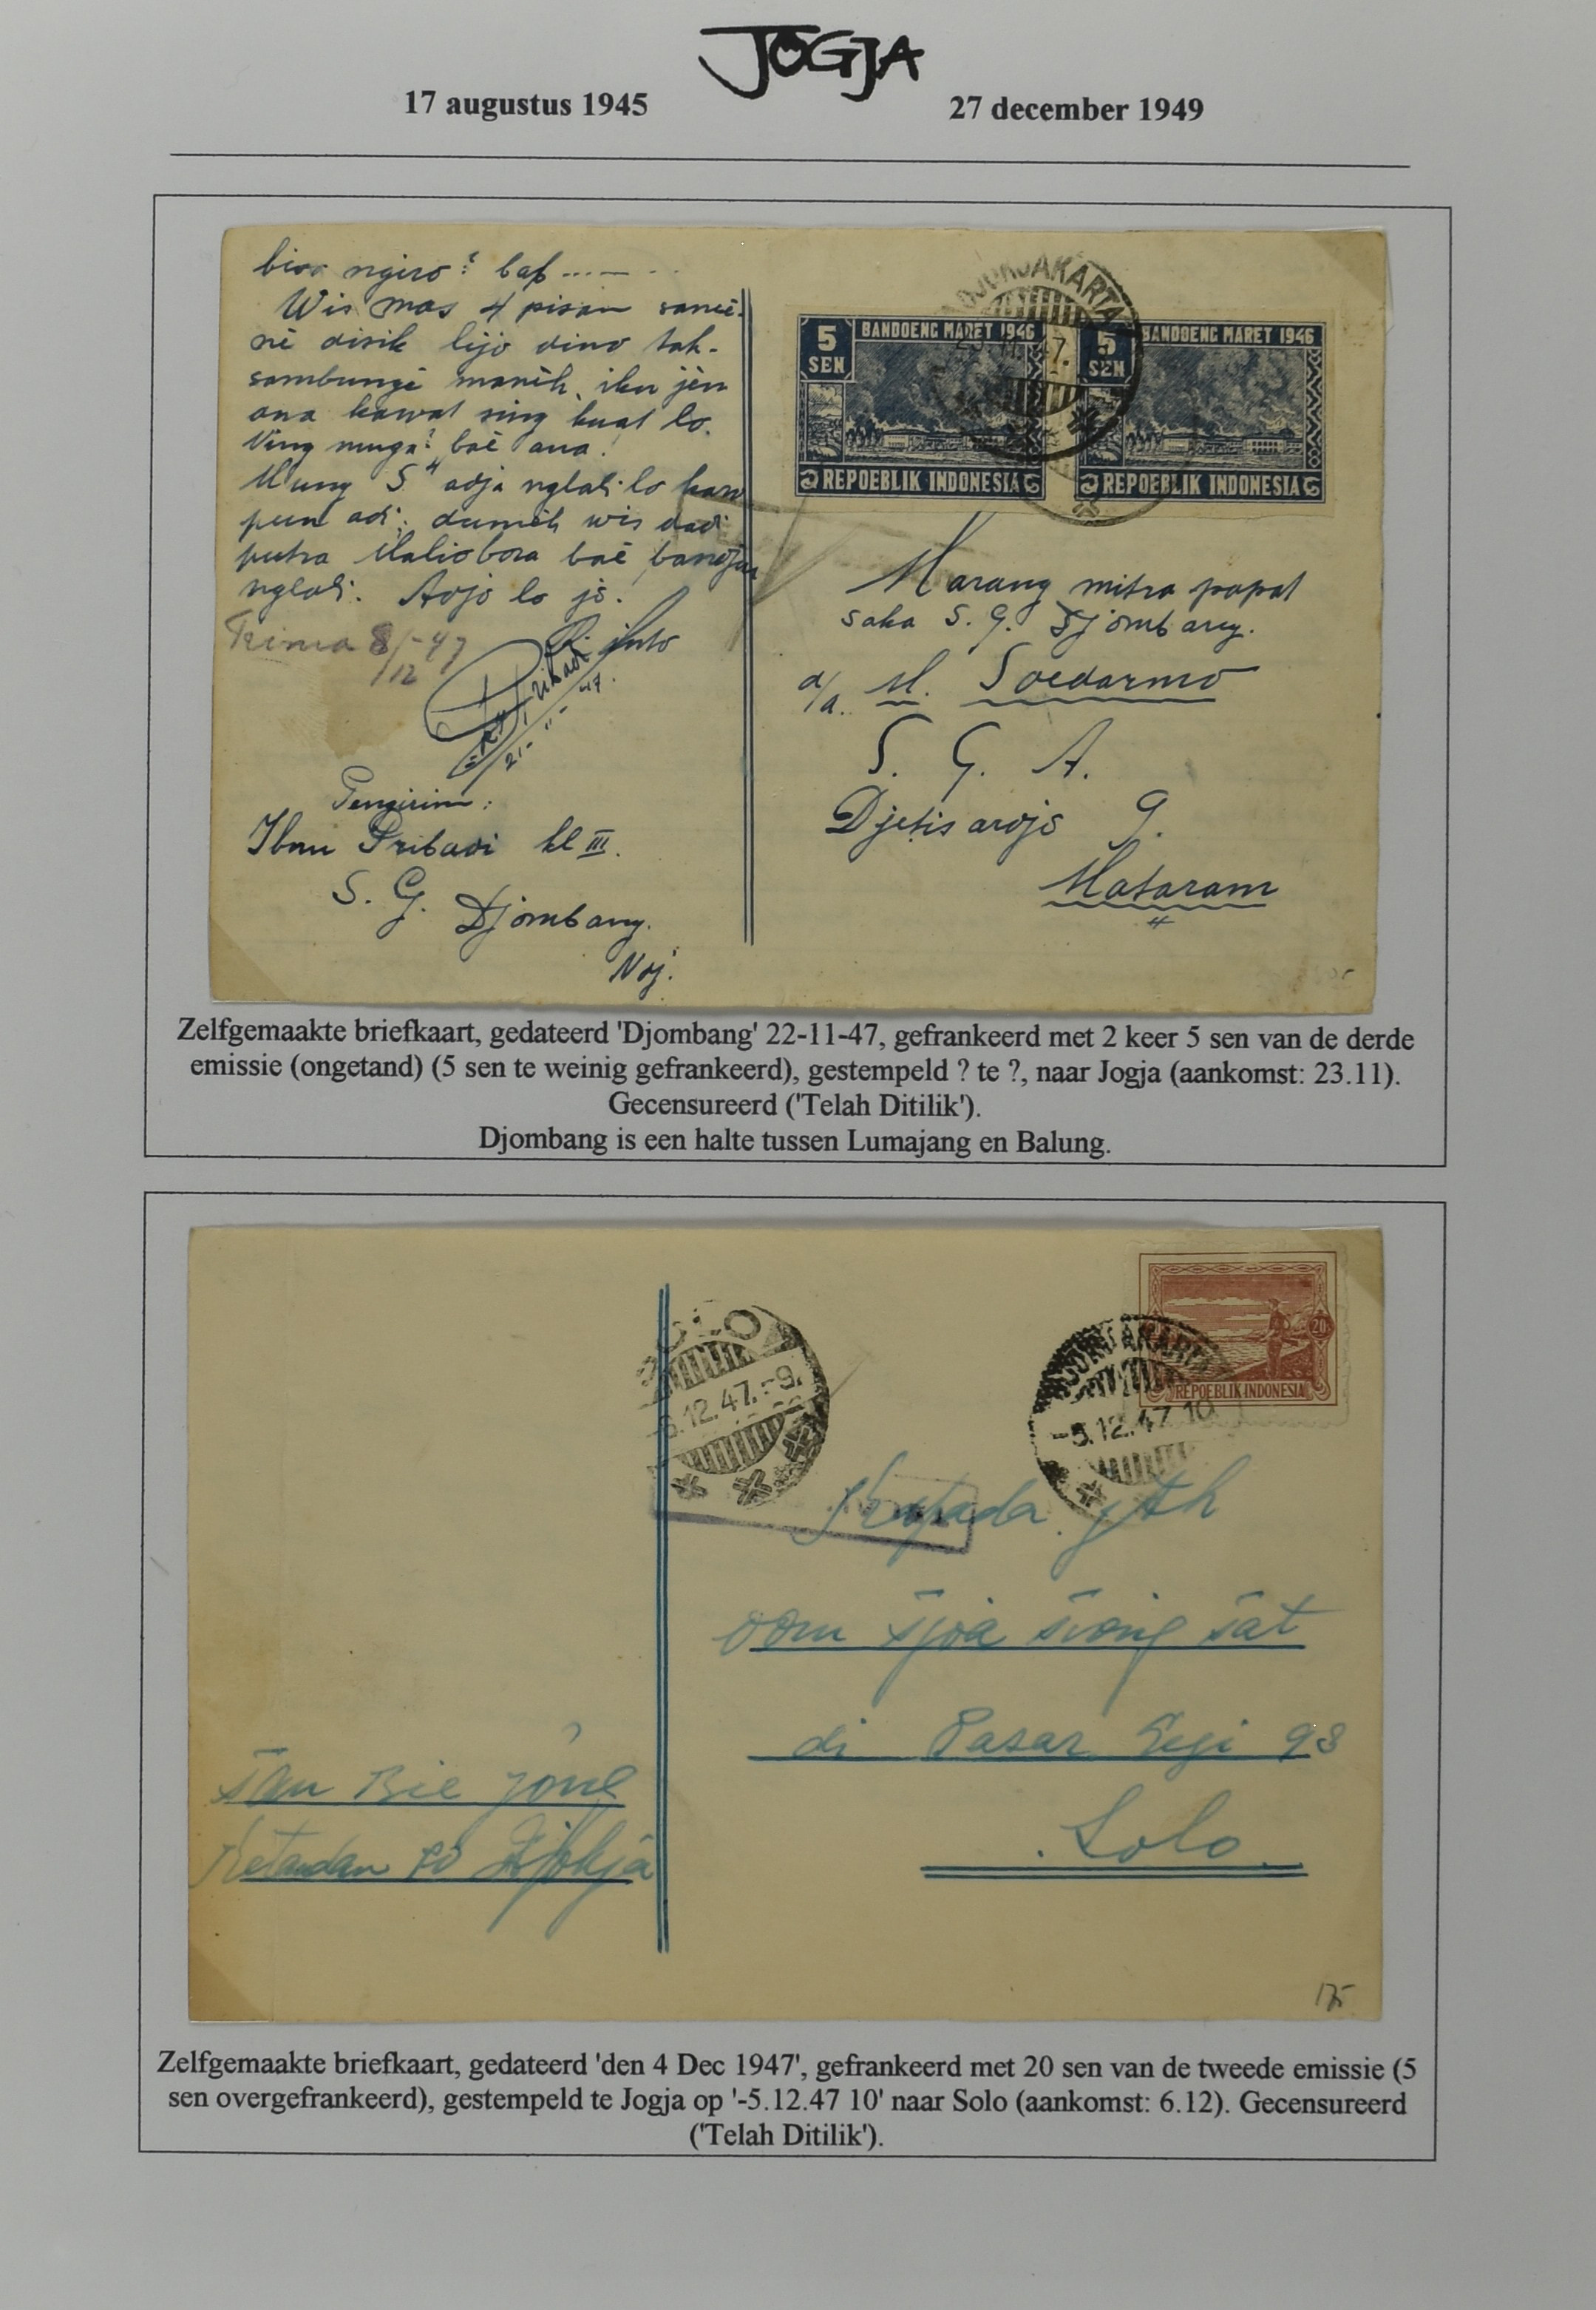 JOGJA
17 augustus 1945
27 december 1949
ngiro? baf ......
Wis mas 4 pisan
né disik lijo dino tak-
sambungi manèh, iku jèn
ana kawat sing kuat lo.
Ning muga2 baé ana!
Mung S" adja nglali lo
adi; dumèh wis dadi
putra Malioboro baé bandjur
nglali. Adjo lo jo.
Trima 8/12-47
Pribadi
21-11-47.
Pengirim:
Ibnu Pribadi kl III.
S. G. Djombang.
DJOKJAKARTA
23.11.47.
5 SEN
BANDOENG MARET 1946
REPOEBLIK INDONESIA
5 SEN
BANDOENG MARET 1946
REPOEBLIK INDONESIA
Marang mitra papat
saka S. G. Djombang.
d/a. M. Soedarmo
S. G. A.
Djetis ardjo 9.
Mataram
Zelfgemaakte briefkaart, gedateerd 'Djombang' 22-11-47, gefrankeerd met 2 keer 5 sen van de derde
emissie (ongetand) (5 sen te weinig gefrankeerd), gestempeld ? te ?, naar Jogja (aankomst: 23.11).
Gecensureerd ('Telah Ditilik').
Djombang is een halte tussen Lumajang en Balung.
SOLO
-6.12.47.-9.
DJOKJAKARTA
-5.12.47 10
20
REPOEBLIK INDONESIA
Kepada jth
oom Tjoa Tiong Tat
di Pasar Legi 98
Solo.
Tan Bie Jong
Ketandan 20 Djokja
175
Zelfgemaakte briefkaart, gedateerd 'den 4 Dec 1947', gefrankeerd met 20 sen van de tweede emissie (5
sen overgefrankeerd), gestempeld te Jogja op '-5.12.47 10' naar Solo (aankomst: 6.12). Gecensureerd
('Telah Ditilik').